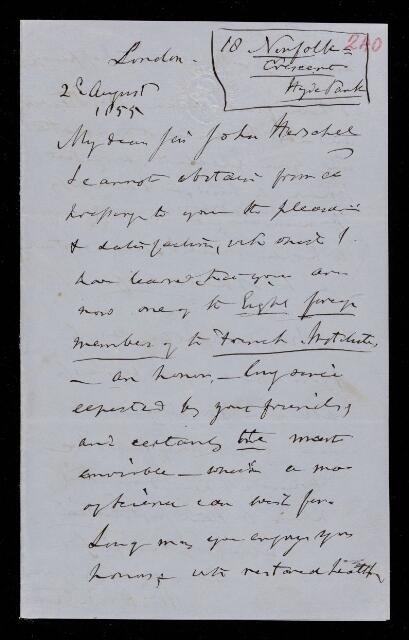 18 Norfolk
240
Crescent
Hyde Park
London.
2d August
1855
My dear Sir John Herschel
I cannot abstain from
to you the pleasure
& satisfaction, with which I
have learned that you are
now one of the Eight foreign
members of the French Institute,
— an honor, — long since
expected by your friends,
and certainly the most
enviable — which a man
of science can wish for.
Long may you enjoy your
honors, with restored health,